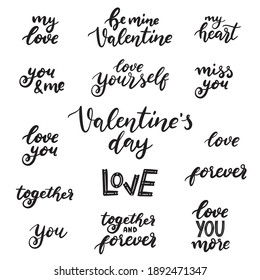 my
love
be mine
Valentine
my
heart
you
& me
love
yourself
miss
you
Valentine's
day
love
you
love
forever
together
LOVE
you
together
AND
forever
love
YOU
more
shutterstock.com · 1892471347